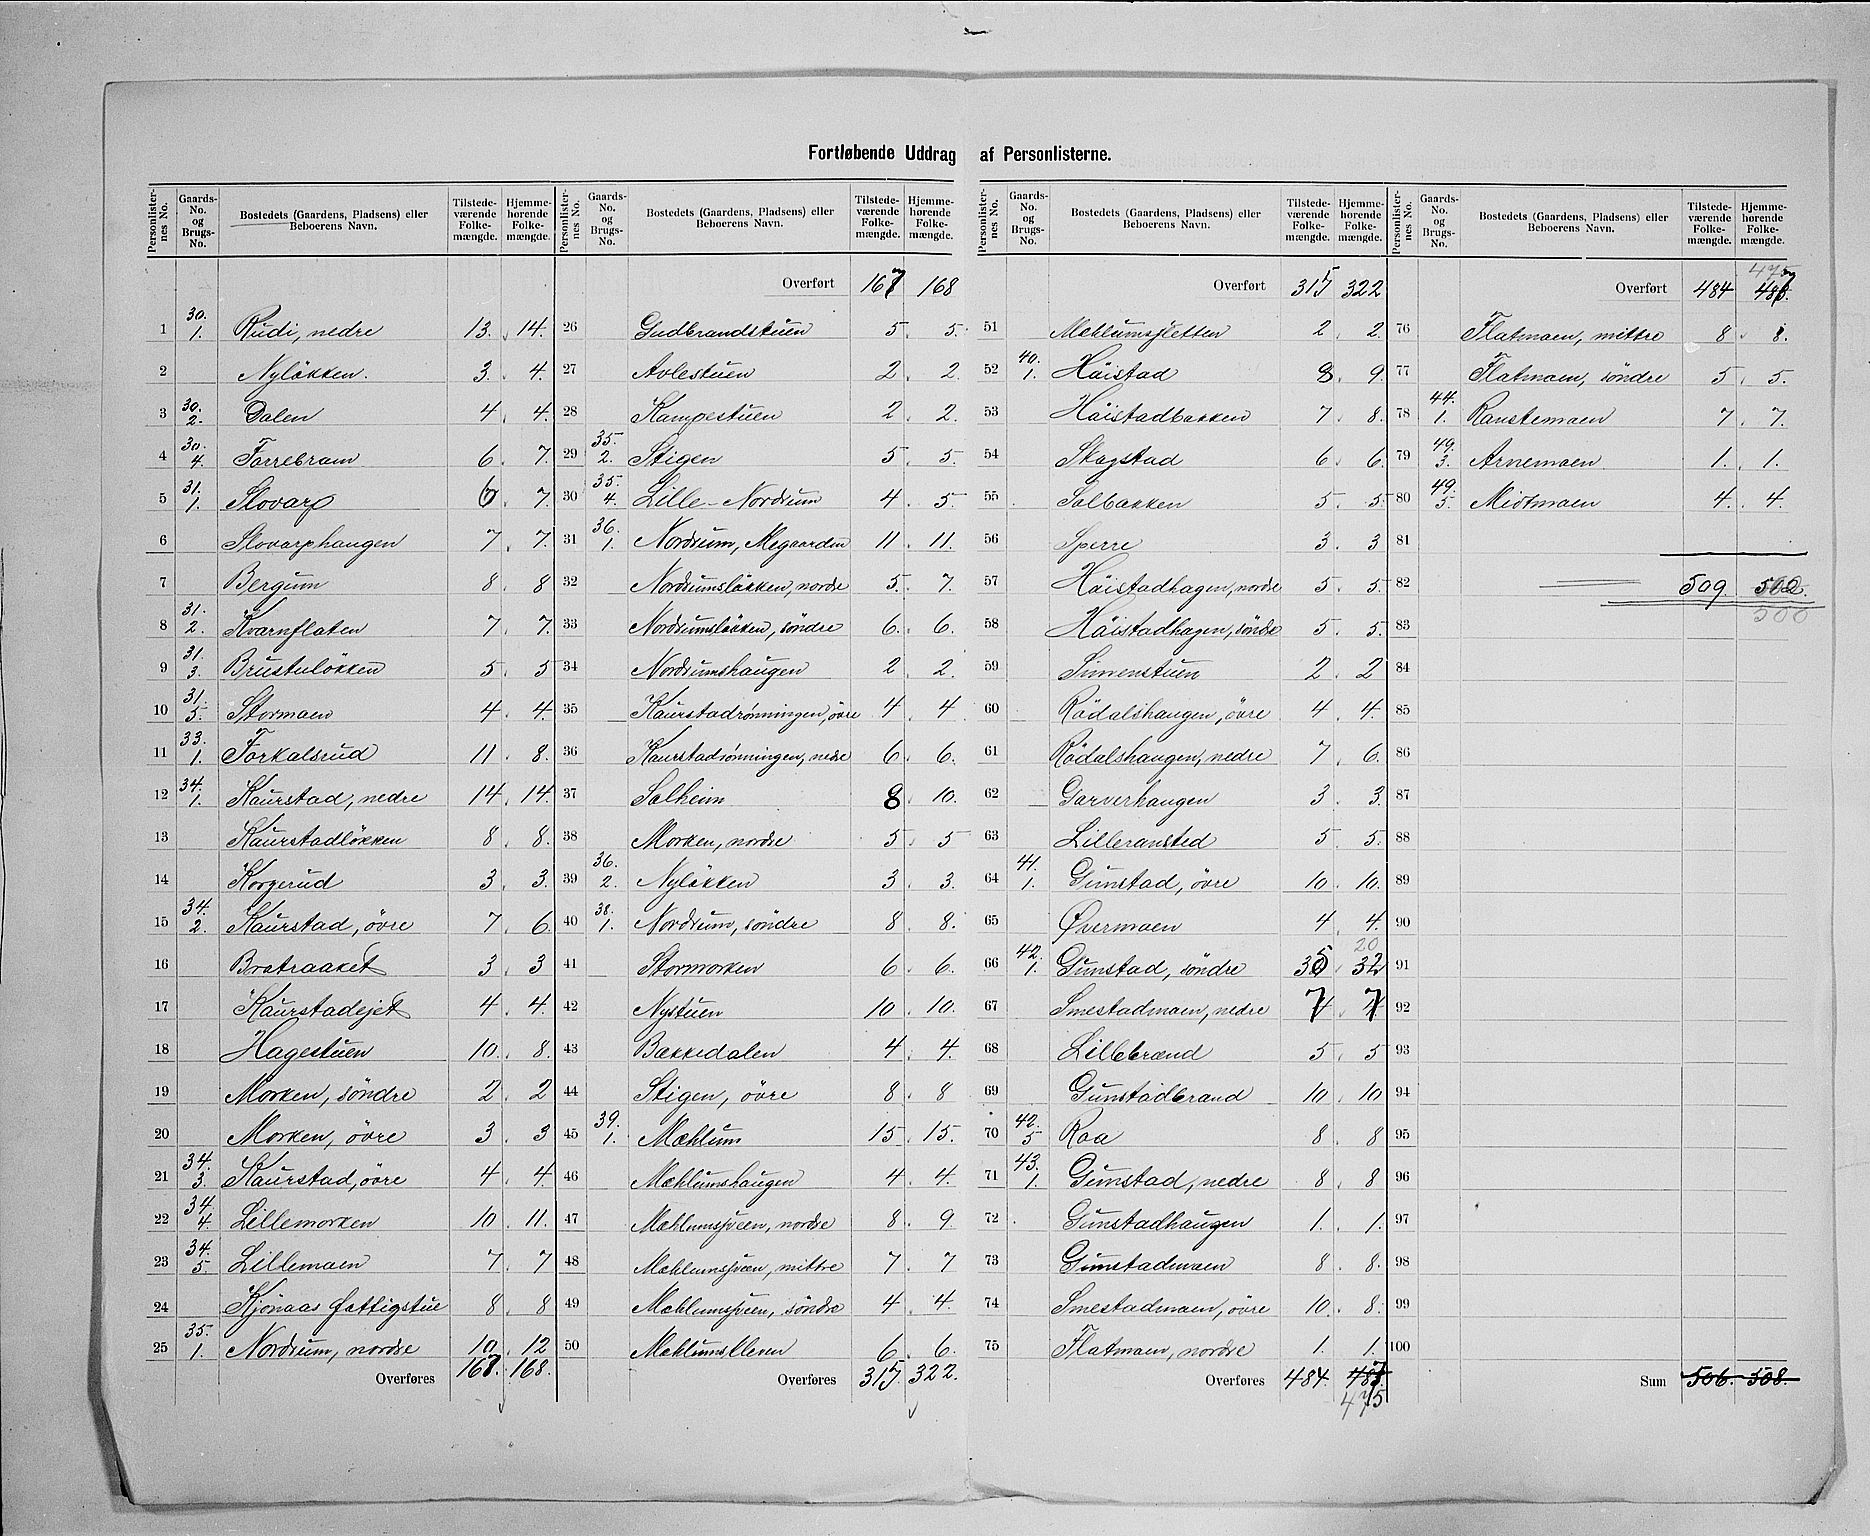 Fortløbende Uddrag af Personlisterne.
Personlister-nes No. | Gaards-No. og Brugs-No. | Bostedets (Gaardens, Pladsens) eller Beboerens Navn. | Tilstede-værende Folke-mængde. | Hjemme-hørende Folke-mængde.
1 | 30. 1. | Rudi, nedre | 13. | 14.
2 | | Nyløkken. | 3. | 4.
3 | 30. 2. | Dalen | 4 | 4.
4 | 30. 4. | Forrebram | 6. | 7.
5 | 31. 1. | Slovarp | 6. | 7.
6 | | Slovarphaugen | 7. | 7.
7 | | Bergum | 8. | 8
8 | 31. 2. | Kvarnflaten | 7. | 7.
9 | 31. 3. | Brustuløkken | 5. | 5
10 | 31. 5. | Stormoen | 4. | 4.
11 | 33. 1. | Forkalsrud | 11. | 8.
12 | 34. 1. | Kaurstad, nedre | 14. | 14.
13 | | Kaurstadløkken | 8. | 8.
14 | | Korgerud | 3. | 3.
15 | 34. 2. | Kaurstad, övre | 7. | 6.
16 | | Bratraaket | 3. | 3
17 | | Kaurstadejet | 4. | 4.
18 | | Hagestuen | 10. | 8.
19 | | Morken, söndre | 2. | 2
20 | | Morken, övre | 3. | 3
21 | 34. 3. | Kaurstad, övre | 4. | 4.
22 | 34. 4. | Lillemorken | 10. | 11.
23 | 34. 5. | Lillemoen | 7. | 7
24 | | Kjönaas Fattigstue | 8. | 8
25 | 35. 1. | Nordrum, nordre | 10. | 12
Overføres | 167. | 168.
Personlister-nes No. | Gaards-No. og Brugs-No. | Bostedets (Gaardens, Pladsens) eller Beboerens Navn. | Tilstede-værende Folke-mængde. | Hjemme-hørende Folke-mængde.
Overført | 167 | 168
26 | | Gudbrandstuen | 5. | 5.
27 | | Avlestuen | 2. | 2.
28 | | Kampestuen | 2. | 2.
29 | 35. 2. | Stigen | 5. | 5.
30 | 35. 4. | Lille-Nordrum | 4. | 5.
31 | 36. 1. | Nordrum, Megaarden | 11. | 11.
32 | | Nordrumsløkken, nordre | 5. | 7.
33 | | Nordrumsløkken, söndre | 6. | 6.
34 | | Nordrumshaugen | 2. | 2.
35 | | Kaurstadrønningen, övre | 4. | 4
36 | | Kaurstadrønningen, nedre | 6. | 6.
37 | | Solheim | 8. | 10.
38 | | Morken, nordre | 5. | 5
39 | 36. 2. | Nyløkken | 3. | 3.
40 | 38. 1. | Nordrum, söndre | 8. | 8.
41 | | Stormorken | 6. | 6.
42 | | Nystuen | 10. | 10.
43 | | Bækkedalen | 4. | 4.
44 | | Stigen, övre | 8. | 8
45 | 39. 1. | Mæhlum | 15. | 15.
46 | | Mæhlumshaugen | 4. | 4.
47 | | Mæhlumsveen, nordre | 8. | 9
48 | | Mæhlumsveen, mittre | 7. | 7
49 | | Mæhlumsveen, söndre | 4. | 4.
50 | | Mæhlumskleven | 6. | 6.
Overføres | 315 | 322.
Personlister-nes No. | Gaards-No. og Brugs-No. | Bostedets (Gaardens, Pladsens) eller Beboerens Navn. | Tilstede-værende Folke-mængde. | Hjemme-hørende Folke-mængde.
Overført | 315 | 322
51 | | Mæhlumssletten | 2. | 2.
52 | 40. 1. | Höistad | 8. | 9.
53 | | Höistadbakken | 7. | 8.
54 | | Skogstad | 6. | 6.
55 | | Solbakken | 5. | 5.
56 | | Sperre | 3. | 3
57 | | Höistadhagen, nordre | 5. | 5.
58 | | Höistadhagen, söndre | 5. | 5.
59 | | Simenstuen | 2. | 2
60 | | Rödalshaugen, övre | 4. | 4.
61 | | Rödalshaugen, nedre | 7. | 6.
62 | | Garverhaugen | 3. | 3.
63 | | Lilleransted | 5. | 5.
64 | 41. 1. | Gunstad, övre | 10. | 10.
65 | | Øvermoen | 4. | 4.
20
66 | 42. 1. | Gunstad, söndre | 35. | 32
67 | | Smestadmoen, nedre | 7. | 7
68 | | Lillebrænd | 5. | 5
69 | | Gunstadbrænd | 10. | 10
70 | 42. 5 | Roa | 8. | 8
71 | 43. 1. | Gunstad, nedre | 8. | 8
72 | | Gunstadhaugen | 1. | 1.
73 | | Gunstadmoen | 8. | 8.
74 | | Smestadmoen, övre | 10. | 8.
75 | | Flatmoen, nordre | 1. | 1.
Overføres | 484. | 487.
475
Personlister-nes No. | Gaards-No. og Brugs-No. | Bostedets (Gaardens, Pladsens) eller Beboerens Navn. | Tilstede-værende Folke-mængde. | Hjemme-hørende Folke-mængde.
475
Overført | 484 | 487.
76 | | Flatmoen, mittre | 8. | 8.
77 | | Flatmoen, söndre | 5. | 5.
78 | 44. 1. | Ranstemoen | 7. | 7.
79 | 49. 3. | Arnemoen | 1. | 1.
80 | 49. 5. | Midtmoen | 4. | 4.
81
82 | | | 509. | 502.
500
83
84
85
86
87
88
89
90
91
92
93
94
95
96
97
98
99
100
Sum | 506. | 508.